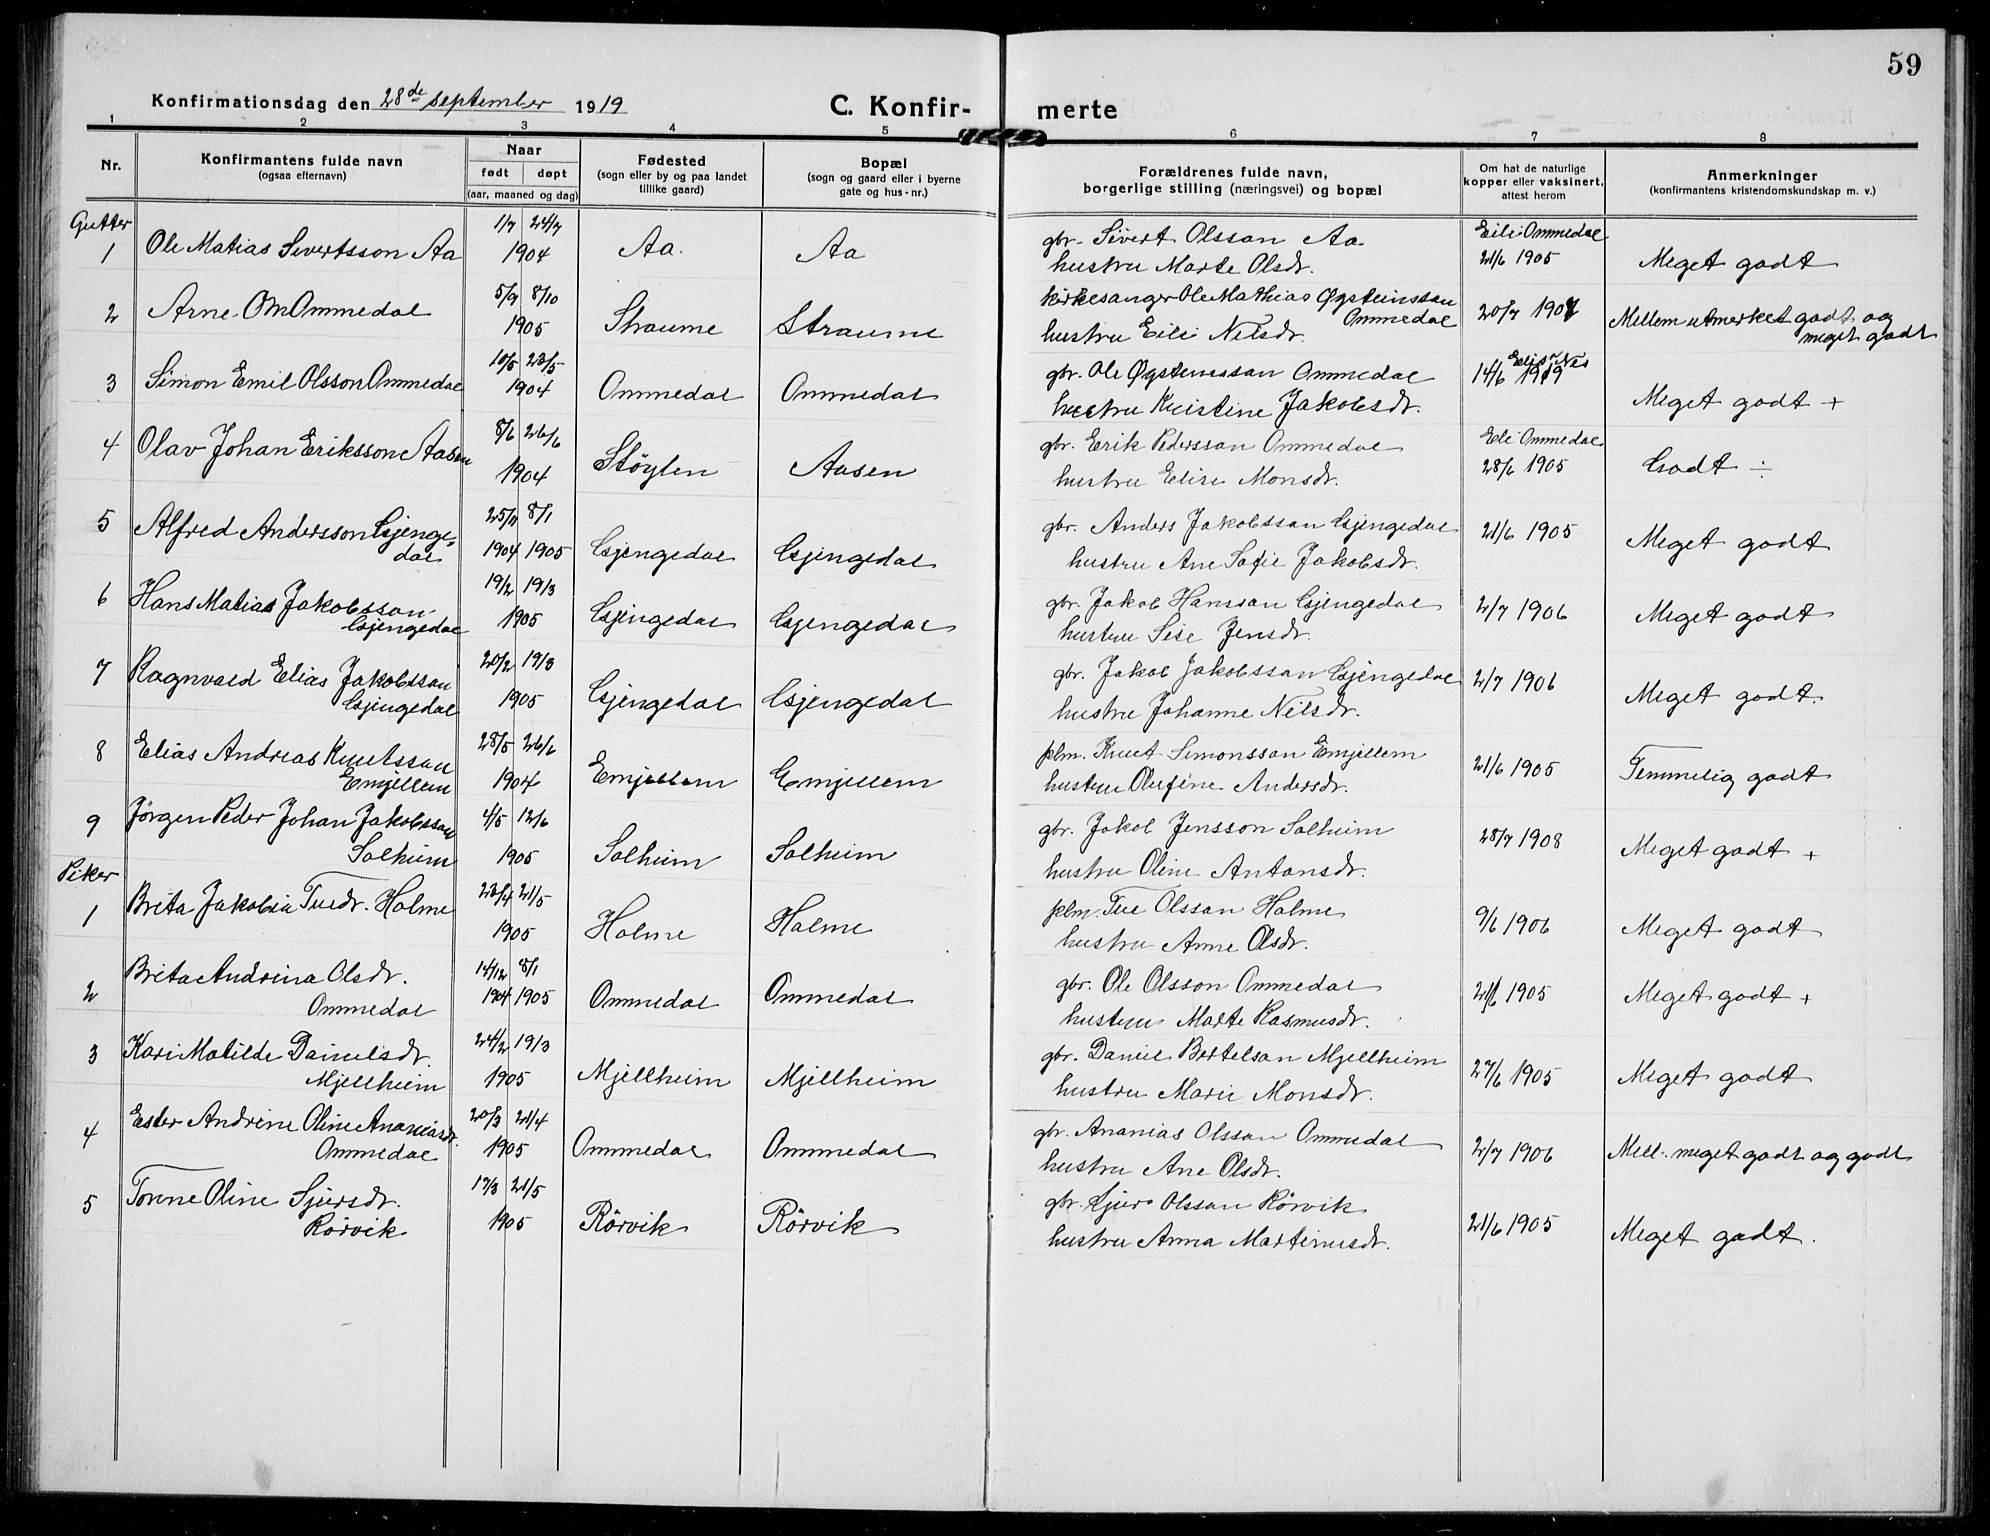 59
Konfirmationsdag den 28de september 1919 C. Konfir- merte
1 2 3 4 5 6 7 8
Nr. Konfirmantens fulde navn (ogsaa efternavn)
Naar født døpt (aar, maaned og dag)
Fødested (sogn eller by og paa landet tillike gaard)
Bopæl (sogn og gaard eller i byerne gate og hus-nr.)
Forældrenes fulde navn, borgerlige stilling (næringsvei) og bopæl
Om hat de naturlige kopper eller vaksinert, attest herom
Anmerkninger (konfirmantens kristendomskundskap m. v.)
Gutter
1 Ole Matias Sivertsson Aa 1/7 24/7 1904 Aa. Aa gbr. Sivert Olsson Aa Eili Ommedal
hustru Marte Olsdr. 21/6 1905 Meget godt
2 Arne OmOmmedal 5/9 8/10 1905 Straume Straume kirkesanger Ole Mathias Øysteinsson
Ommedal 20/7 1907 Mellem utmerket godt og
hustru Eili Nilsdr. meget godt
3 Simon Emil Olsson Ommedal 10/5 23/5 1904 Ommedal Ommedal gbr. Ole Øysteinsson Ommedal 14/6 1919
hustru Kristine Jakobsdr. Meget godt +
4 Olav Johan Eriksson Aasen 8/6 26/6 1904 Støylen Aasen gbr. Erik Pedersson Ommedal Eili Ommedal
hustru Elise Monsdr. 28/6 1905 Godt ÷
5 Alfred Andersson Gjenge-
dal 25/11 8/1 1904 1905 Gjengedal Gjengedal gbr. Anders Jakobsson Gjengedal 21/6 1905 Meget godt
hustru Ane Sofie Jakobsdr.
6 Hans Matias Jakobsson
Gjengedal 19/2 19/3 1905 Gjengedal Gjengedal gbr. Jakob Hansson Gjengedal 2/7 1906 Meget godt
hustru Sise Jensdr.
7 Ragnvald Elias Jakobsson
Gjengedal 20/2 19/3 1905 Gjengedal Gjengedal gbr. Jakob Jakobsson Gjengedal 2/7 1906 Meget godt.
hustru Johanne Nilsdr.
8 Elias Andreas Knutsson
Emjellem 28/5 26/6 1904 Emjellem Emjellem plm. Knut Simonsson Emjellem 21/6 1905 Temmelig godt
hustru Olufine Andersdr.
9 Jørgen Peder Johan Jakobsson
Solheim 4/5 12/6 1905 Solheim Solheim gbr. Jakob Jensson Solheim 28/7 1908 Meget godt +
hustru Oline Antonsdr.
Piker
1 Brita Jakobia Tuedr. Holme 23/4 21/5 1905 Holme Holme plm. Tue Olsson Holme 9/6 1906 Meget godt
hustru Anne Olsdr.
2 Brita Andrina Olsdr.
Ommedal 14/12 8/1 1904 1905 Ommedal Ommedal gbr. Ole Olsson Ommedal 21/6 1905 Meget godt +
hustru Marte Rasmusdr.
3 Kari Matilde Danielsdr.
Mjellheim 24/2 19/3 1905 Mjellheim Mjellheim gbr. Daniel Bertelsan Mjellheim 27/6 1905 Meget godt
hustru Marie Monsdr.
4 Ester Andrine Oline Ananiasdr.
Ommedal 20/3 21/4 1905 Ommedal Ommedal gbr. Ananias Olsson Ommedal 2/7 1906 Mell. meget godt og godt
hustru Ane Olsdr.
5 Tomine Oline Sjursdr.
Rörvik 17/3 21/5 1905 Rörvik Rörvik gbr. Sjur Olsson Rörvik 21/6 1905 Meget godt.
hustru Anna Martinusdr.